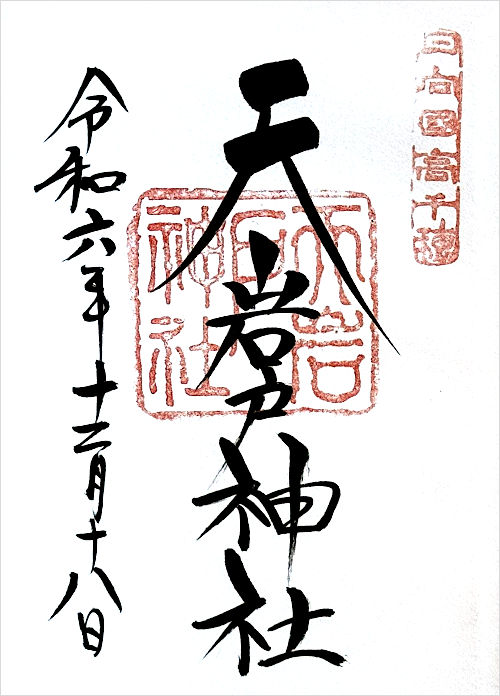 日向国高千穂
天岩戸神社
天岩戸神社
令和六年十二月十八日